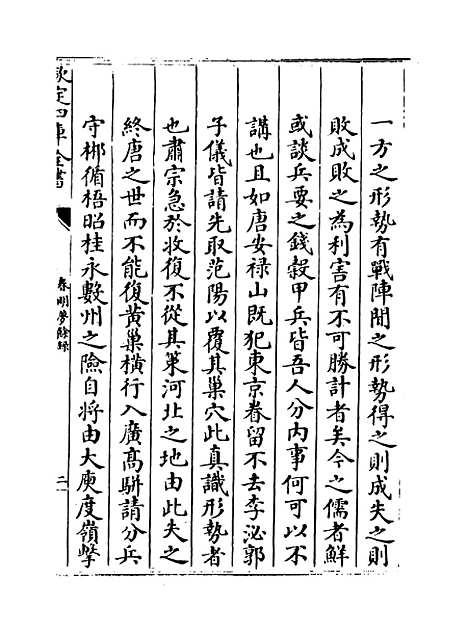 一方之形勢有戰陣間之形勢得之則成失之則
敗成敗之為利害有不可勝計者矣今之儒者鮮
或談兵要之錢穀甲兵皆吾人分内事何可以不
講也且如唐安禄山既犯東京眷留不去李泌郭
子儀皆請先取范陽以覆其巢穴此真識形勢者
也肅宗急於收復不從其策河北之地由此失之
終唐之世而不能復黄巢横行入廣高駢請分兵
守郴循梧昭桂永數州之險自將由大庾度嶺擊
欽定四庫全書
春明夢餘録